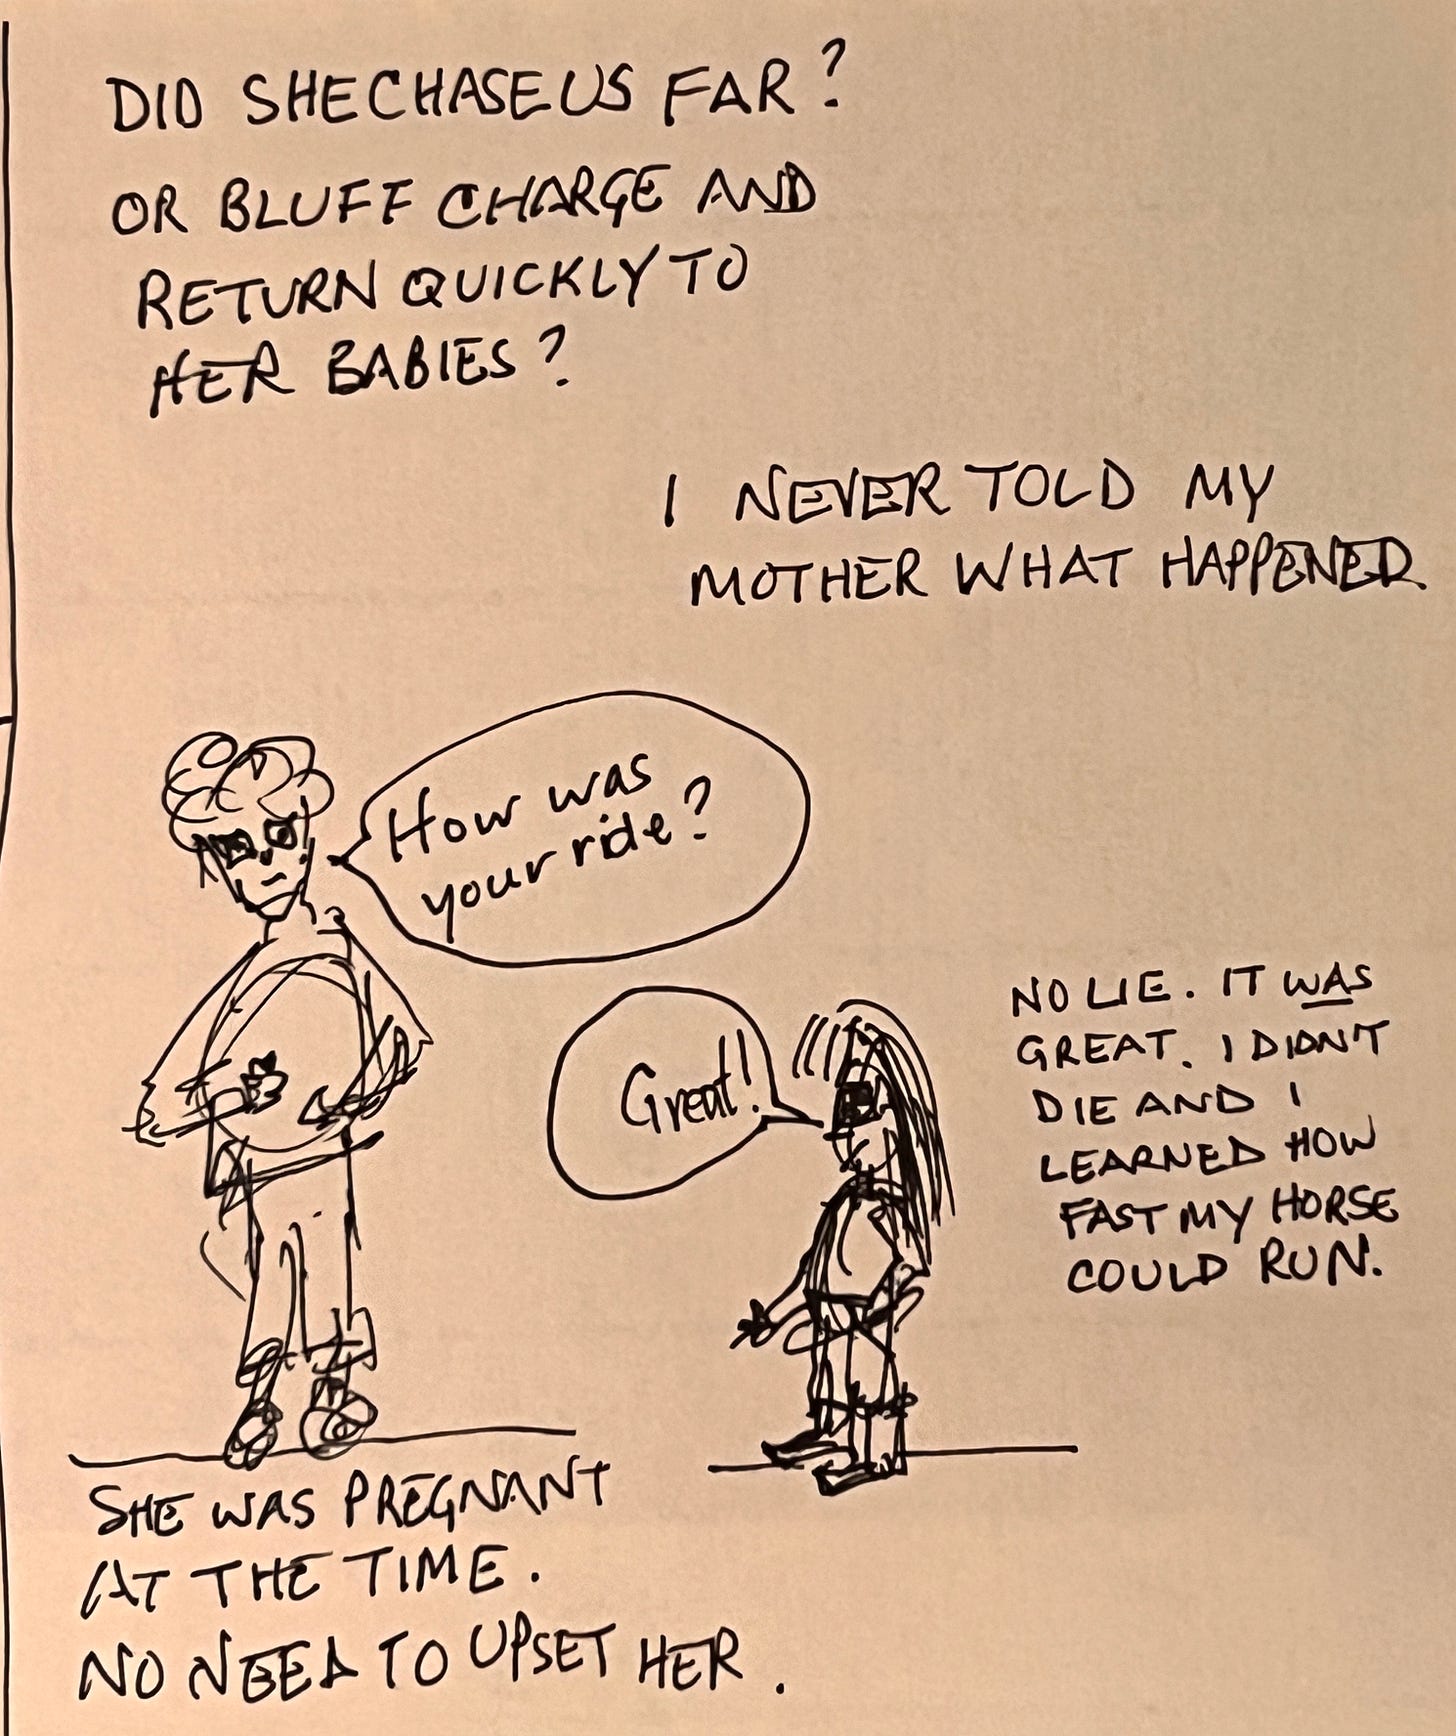 DID SHE CHASE US FAR?
OR BLUFF CHARGE AND
RETURN QUICKLY TO
HER BABIES?
I NEVER TOLD MY
MOTHER WHAT HAPPENED
How was
your ride?
Great!
NO LIE. IT WAS
GREAT. I DIDN'T
DIE AND I
LEARNED HOW
FAST MY HORSE
COULD RUN.
SHE WAS PREGNANT
AT THE TIME.
NO NEED TO UPSET HER.